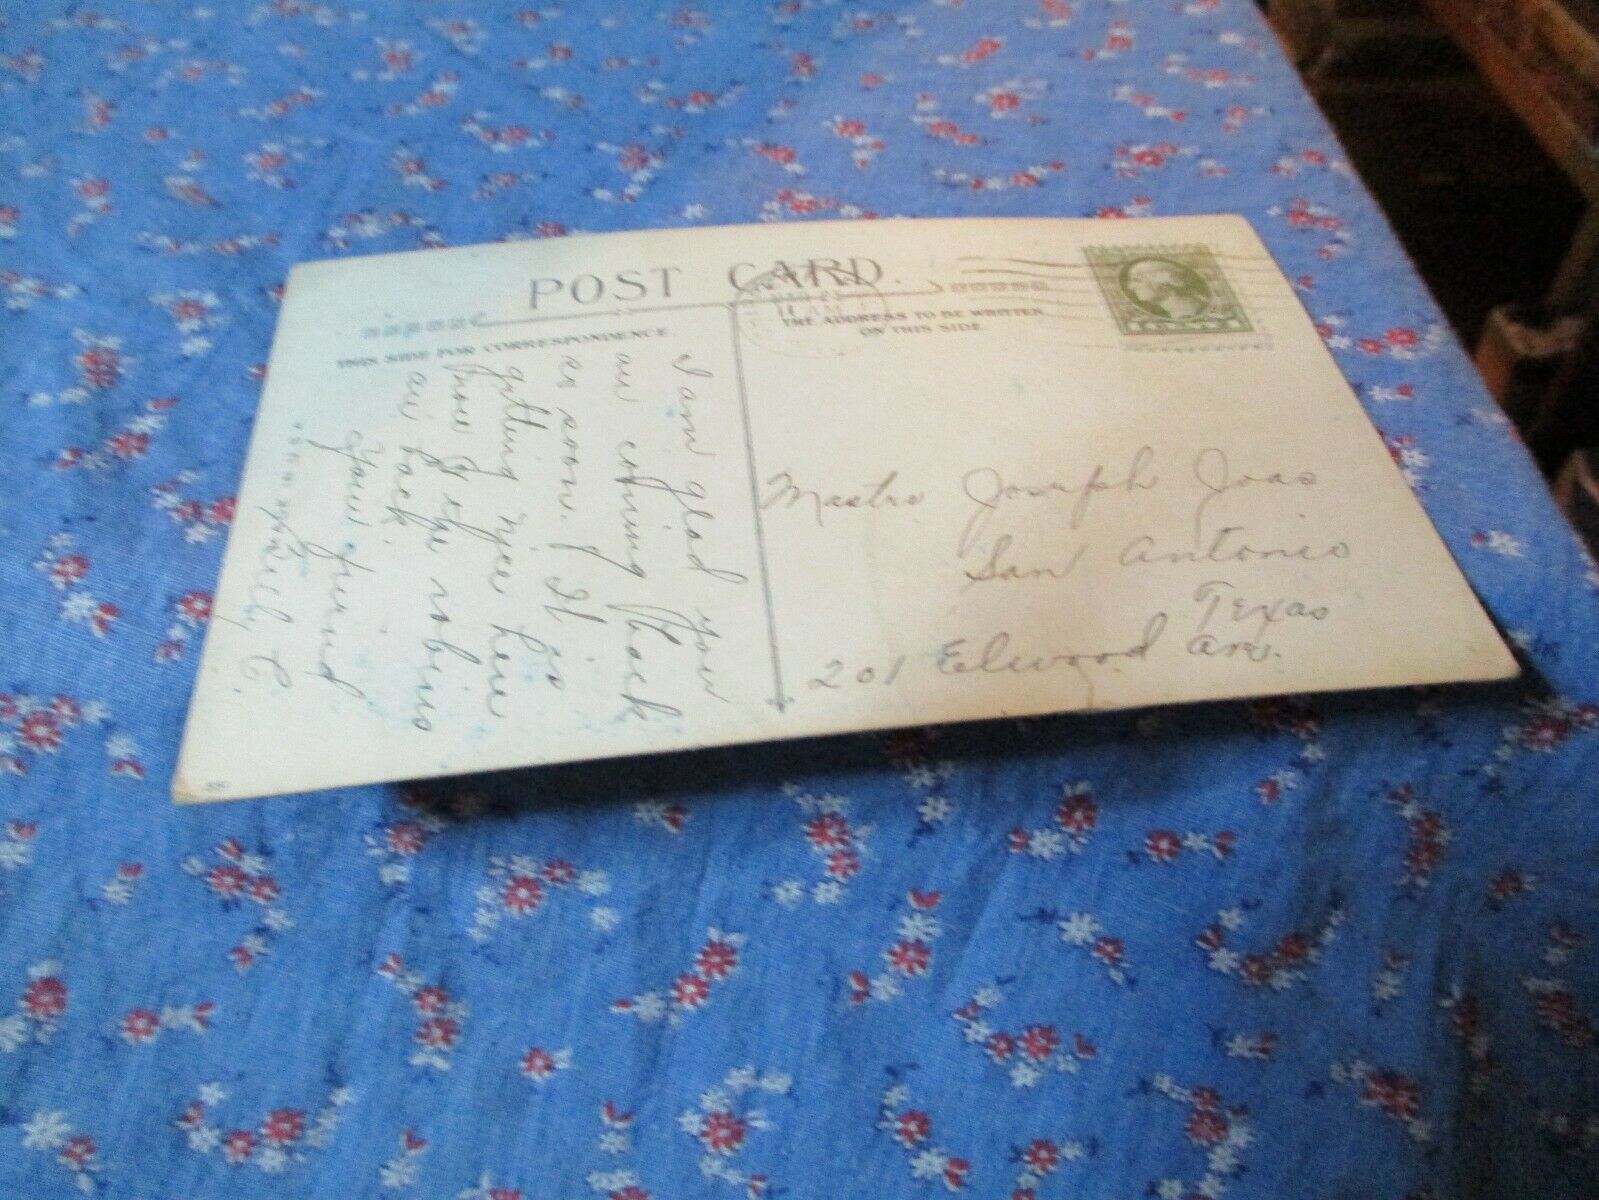 POST CARD.
THIS SIDE FOR CORRESPONDENCE.
THE ADDRESS TO BE WRITTEN
ON THIS SIDE.
I am glad you
are coming back
so soon. It is
getting nice here
now & the robins
are back.
Your friend
C.
Joseph Joas
San Antonio
Texas
201 Elwood Ave.